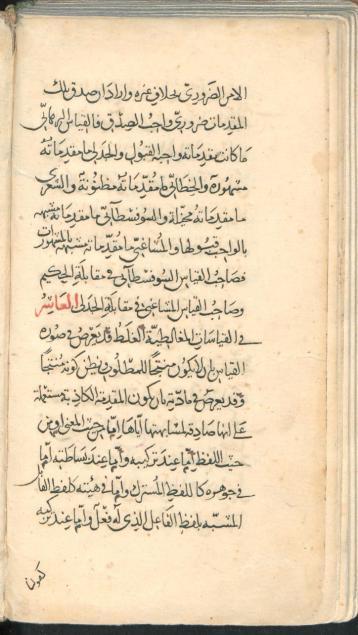 الامر الضروري بخلاف غيره واراد ان صدق تلك
المقدمات ضروري واجب الصدق فالقياس البرهاني
ما كانت مقدماته واجبة القبول والجدلي ما مقدماته
مشهورة والخطابي ما مقدماته مظنونة والشعري
ما مقدماته مخيلة والسوفسطائي ما مقدماته مشبهة
بالواجب قبولها والمشاغبي ما مقدماته مشبهة بالمشهورات
فصاحب القياس السوفسطائي في مقابلة الحكيم
وصاحب القياس المشاغبي في مقابلة الجدلي العاشر
في القياسات المغالطية الغلط قد يعرض في صورة
القياس بان لا يكون منتجا للمطلوب يظن كونه منتجا
وقد يعرض في مادته بان يكون المقدمة الكاذبة مشتملة
على انها صادقة لمشابهتها اياها اما من حيث المعنى او من
حيث اللفظ اما عند تركيبه واما عند بساطته اما
في جوهره كاللفظ المشترك واما في هيئته كلفظ القابل
المشبه بلفظ الفاعل الذي له فعل واما عند تركيبه
كقولنا